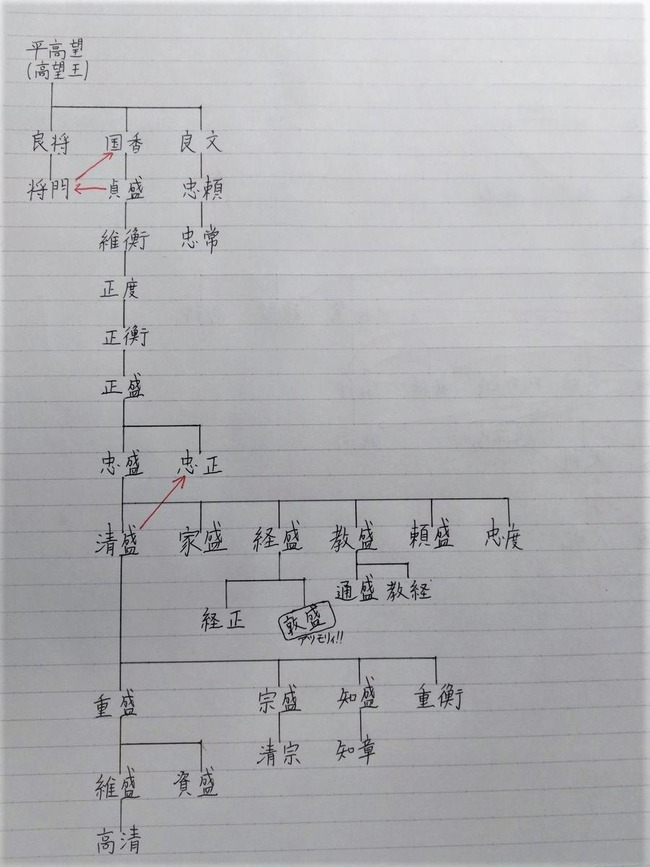 平高望
(高望王)
良将 国香 良文
将門 貞盛 忠頼
維衡 忠常
正度
正衡
正盛
忠盛 忠正
清盛 家盛 経盛 教盛 頼盛 忠度
通盛 教経
経正 敦盛
アツモリィ!!
重盛 宗盛 知盛 重衡
清宗 知章
維盛 資盛
高清